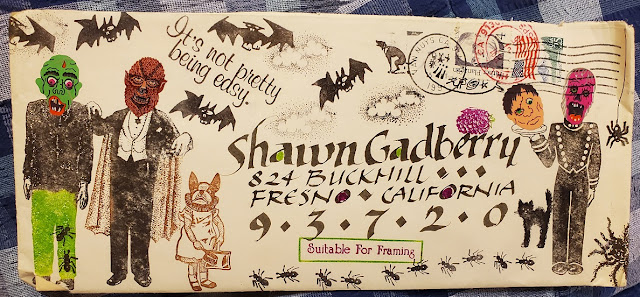 It's not pretty
being easy.
Shawn Gadberry
824 BUCKHILL
FRESNO • CALIFORNIA
9 • 3 • 7 • 2 • 0
Suitable For Framing